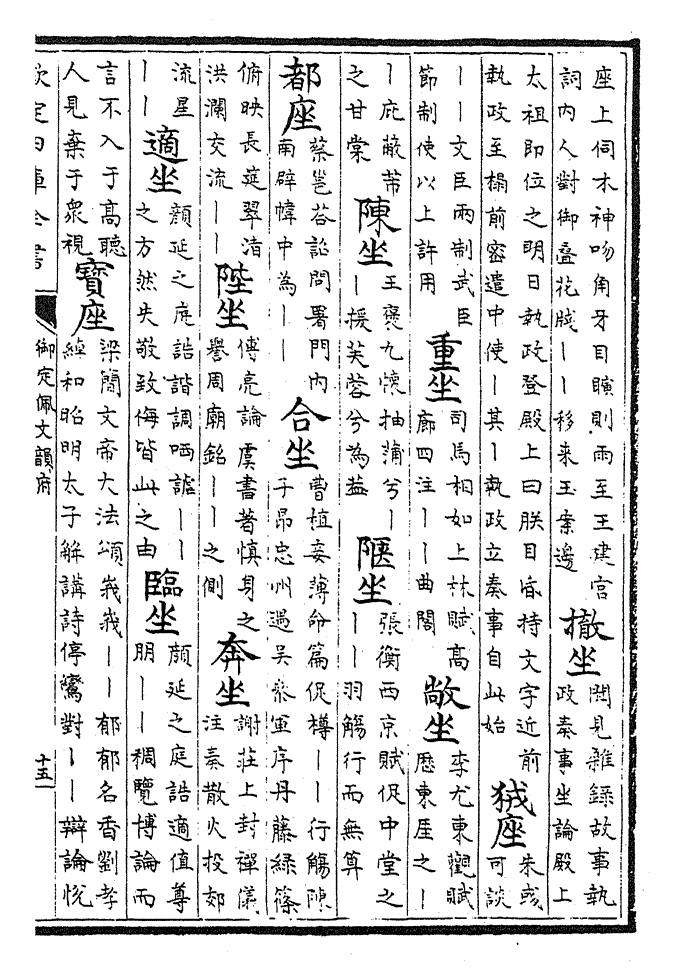 座上伺木神吻角牙目曠則雨至王建宫
詞内人對御叠花牋丨丨移来玉案邊
撤坐
聞見雜錄故事執
政奏事坐論殿上
太祖即位之明日執政登殿上曰朕目昏持文字近前
執政至榻前密遣中使丨其丨執政立奏事自此始
狨座
朱彧
可談
丨丨文臣兩制武臣
節制使以上許用
重坐
司馬相如上林賦高
廊四注丨丨曲閣
敞坐
李尤東觀賦
歷東厓之丨
丨庇蔽芾
之甘棠
陳坐
王褒九懷抽蒲兮丨
丨援芙蓉兮為蓋
隁坐
張衡西京賦促中堂之
丨丨羽觴行而無算
都座
蔡邕荅詔問署門内
南辟幃中為丨丨
合坐
曹植妾薄命篇促樽丨丨行觴陳
子昂忠州過吴參軍序丹藤綠篠
俯映長筵翠渚
洪瀾交流丨丨
陛坐
傅亮論虞書著慎身之
譽周廟銘丨丨之側
奔坐
謝莊上封禪儀
注奏散火投郊
流星
丨丨
適坐
顔延之庭誥諧調哂謔丨丨
之方然失敬致侮皆此之由
臨坐
顔延之庭誥適值尊
朋丨丨稠覽博論而
言不入于高聽
人見棄于衆視
寶座
梁簡文帝大法頌峩峩丨丨郁郁名香劉孝
綽和昭明太子解講詩停鸞對丨丨辯論悦
欽定四庫全書
御定佩文韻府
十五